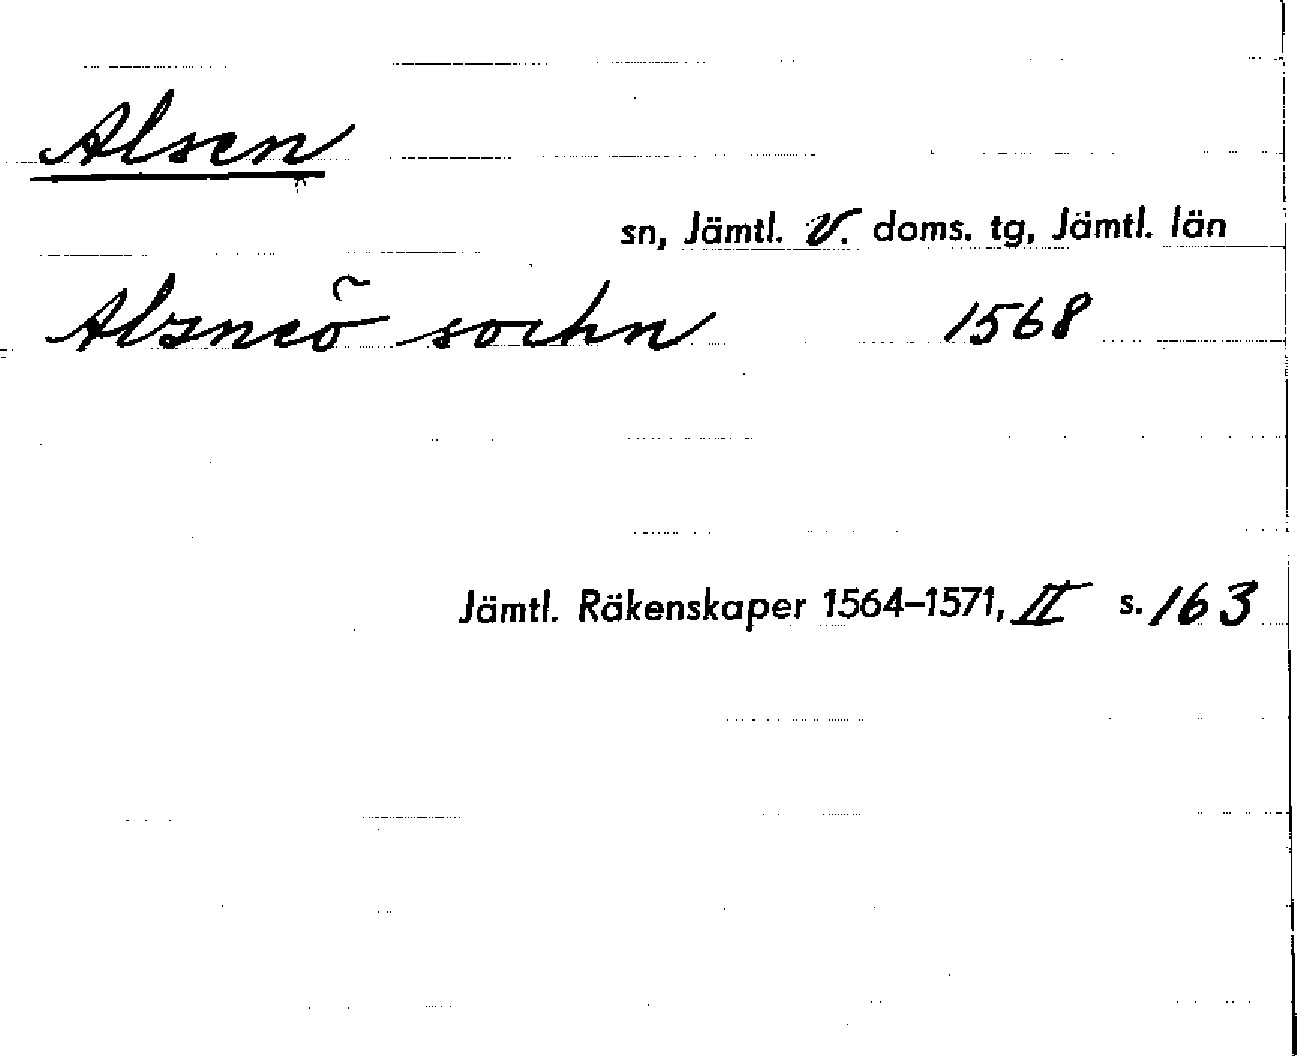 Alsen
sn, Jämtl. V. doms. tg, Jämtl. län
Alsneõ sochn 1568
Jämtl. Räkenskaper 1564–1571, II s. 163